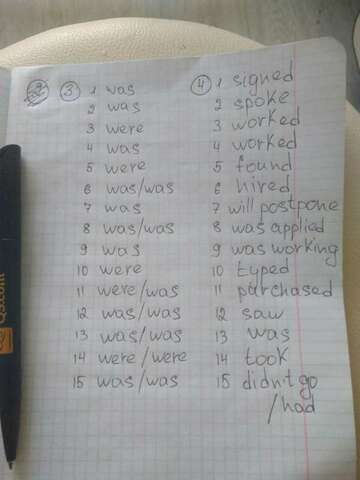 3 1 was
2 was
3 were
4 was
5 were
6 was/was
7 was
8 was/was
9 was
10 were
11 were/was
12 was/was
13 was/was
14 were/were
15 was/was
4 1 signed
2 spoke
3 worked
4 worked
5 found
6 hired
7 will postpone
8 was applied
9 was working
10 typed
11 purchased
12 saw
13 was
14 took
15 didn't go
/had